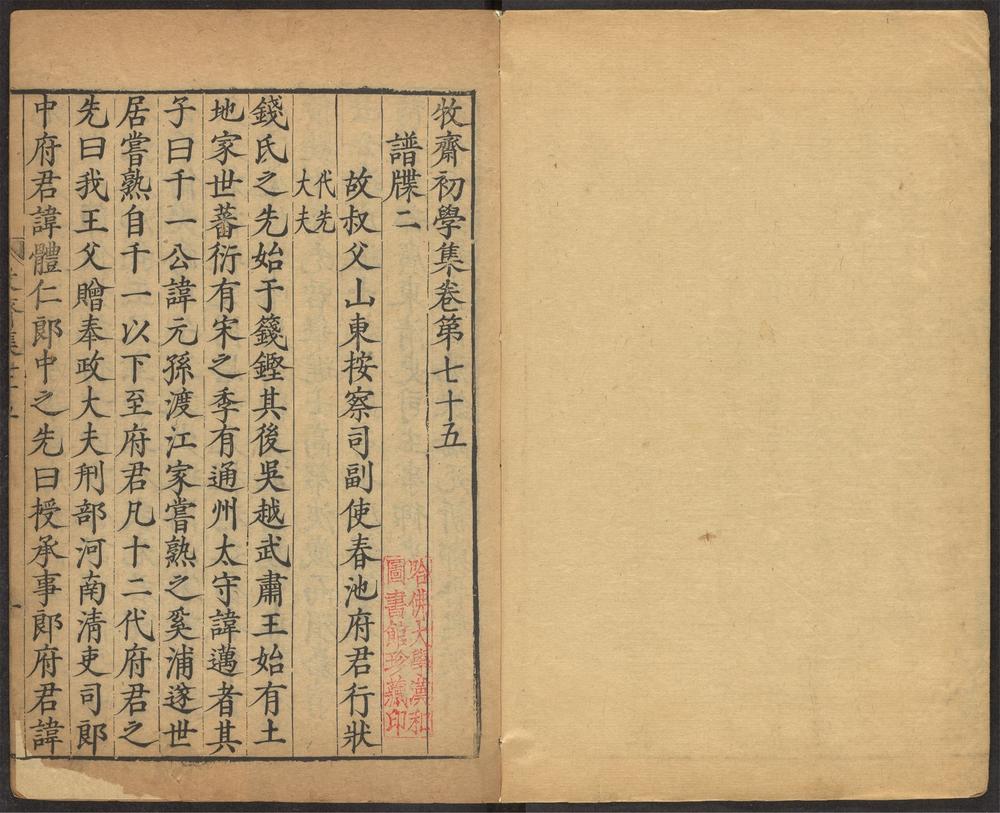 牧齋初學集卷第七十五
譜牒二
故叔父山東按察司副使春池府君行狀
代先
大夫
錢氏之先始于籛鏗其後吳越武肅王始有土
地家世蕃衍有宋之季有通州太守諱邁者其
子曰千一公諱元孫渡江家嘗熟之奚浦遂世
居嘗熟自千一以下至府君凡十二代府君之
先曰我王父贈奉政大夫刑部河南清吏司郎
中府君諱體仁郎中之先曰授承事郎府君諱
哈佛大學漢和
圖書館珍藏印